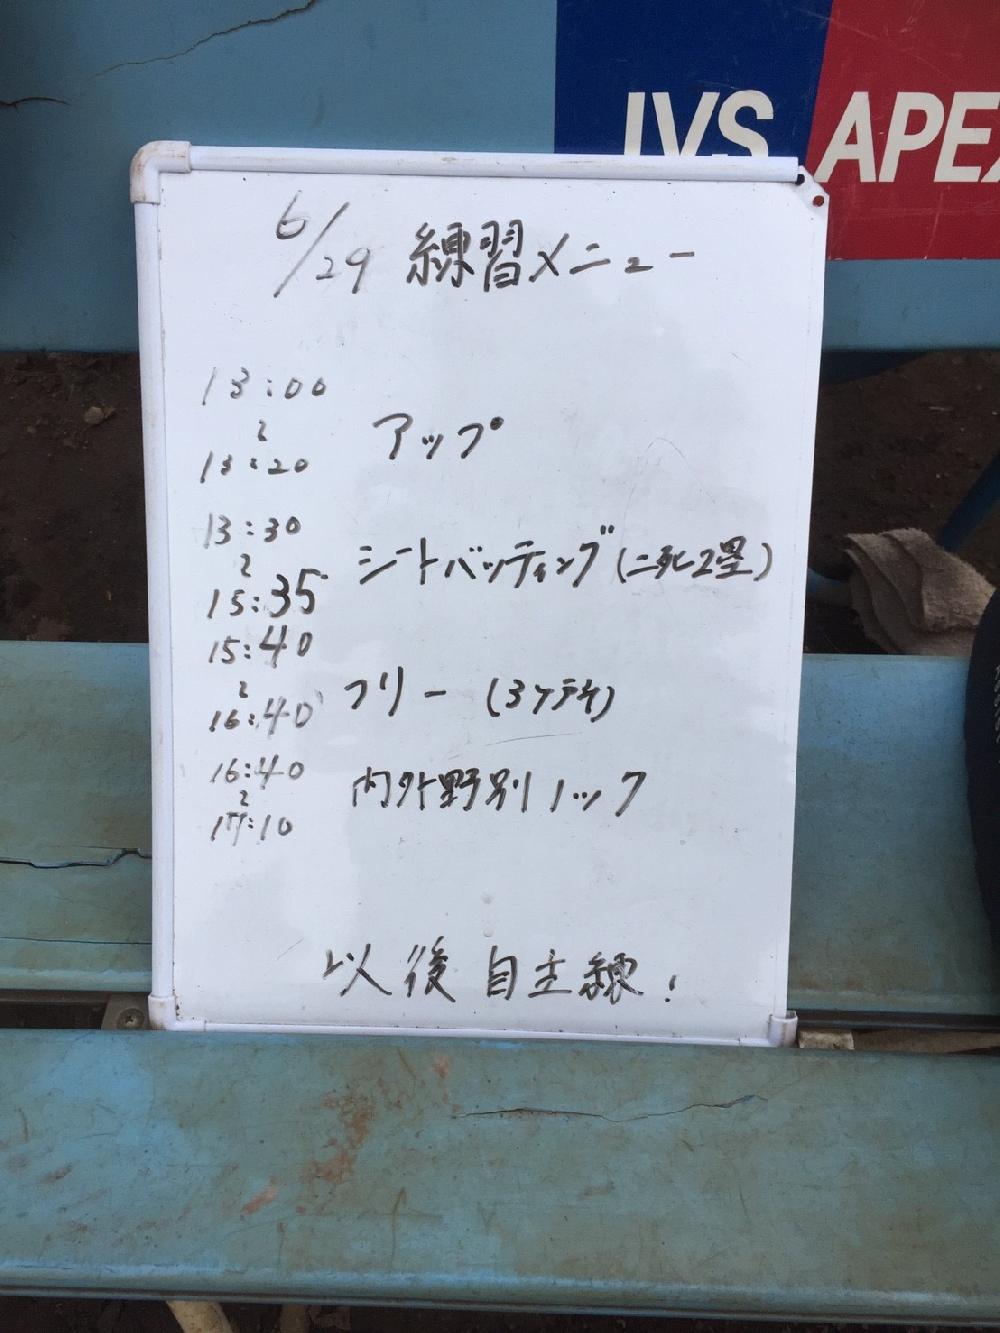 IVS APEX
6/29 練習メニュー
13:00
〜
13:20
アップ
13:30
〜
15:35
シートバッティング(二死2塁)
15:40
〜
16:40
フリー (3ケ所)
16:40
〜
17:10
内外野別ノック
以後 自主練!